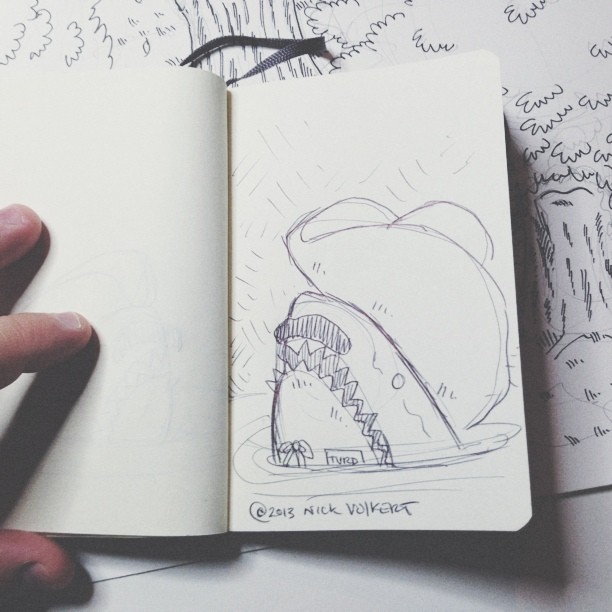 TURD
©2013 NICK VOLKERT